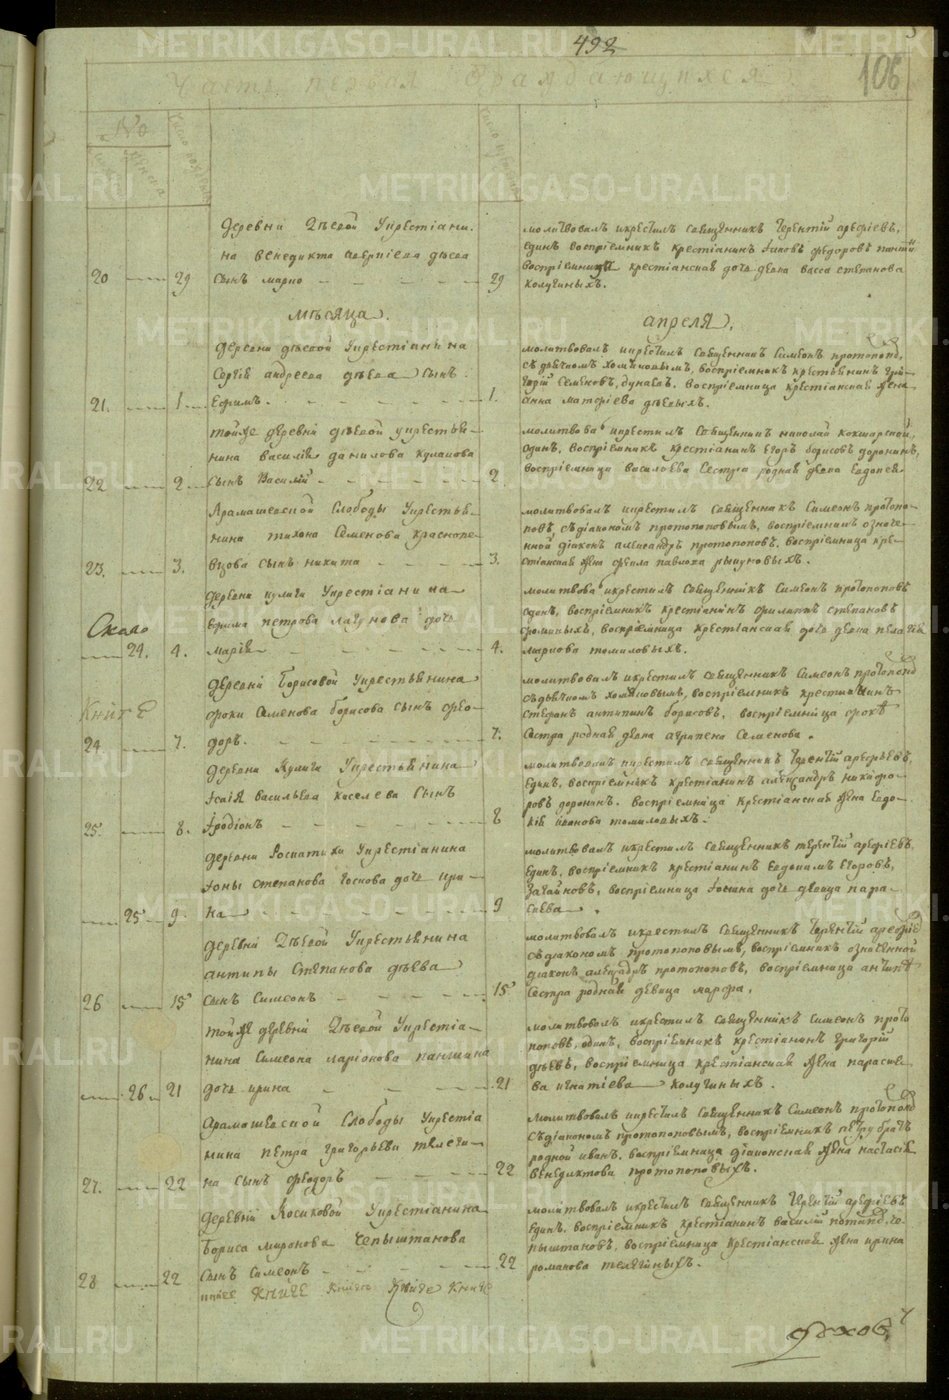 492
106
Часть первая о раждающихся
№
деревни Дѣевой У крестіани-
на Венедикта
20 29 сынъ 29
молитвовалъ и крестилъ священникъ Терентій Арефіевъ,
единъ воспріемникъ крестіанинъ Іаковъ Федоровъ
воспріемница крестіанская дочь девка Васса Степанова
Колугиныхъ.
мѣсяца
апреля,
деревни Дѣевой У крестіанина
Сергея Андреева Дѣева сынъ
21. 1. Ефимъ. 1.
молитвовалъ и крестилъ священникъ Симеонъ протопопо,
съ дьячкомъ Хомяковымъ, воспріемникъ крестьянинъ Гри-
горій Семеновъ, Дунаевъ. воспріемница крестіанская жена
Анна Матфіева Дѣевыхъ.
той же деревни Дѣевой у крестья-
нина Василія Данилова Кулакова
22 2 сынъ Василій 2
молитвова и крестилъ священникъ Николай Кокшарской,
единъ, воспріемникъ крестіанинъ Егоръ Борисовъ Доронинъ,
воспріемница Васильева сестра родная девка Евдокея
Арамашевской Слободы У крестья-
нина Тихона Семенова Краснопе-
23. 3. вцова сынъ Никита 3.
молитвовалъ и крестилъ священникъ Симеонъ протопо-
повъ, съ діакономъ протопоповымъ, воспріемникъ означе-
нной діаконъ Александръ протопоповъ. воспріемница кре-
стіанская жена Фекла Павлова
деревни Кулига У крестіанина
Ефима Петрова Лагунова дочь
24. 4. Марія 4.
Около
молитвова и крестилъ священникъ Симеонъ протопоповъ
единъ, воспріемникъ крестіанинъ Филиппъ Степановъ
Фоминыхъ, воспріемница крестіанская дочь девка Пелагея
Маркова Томиловыхъ.
деревни Борисовой У крестьянина
Фоки Семенова Борисова сынъ Фео-
24 7. доръ. 7.
Книге
молитвовалъ и крестилъ священникъ Симеонъ протопопо
съ дьячкомъ Хомяковымъ, воспріемникъ крестьянинъ
Стефанъ Антипинъ Борисовъ, воспріемница Фоки
сестра родная девка Агрипена Семенова.
деревни Кулига У крестьянина
Ісаія Васильева Киселева сынъ
25. 8. Іродіонъ 8
молитвовалъ и крестилъ священникъ Терентій Арефьевъ,
единъ, воспріемникъ крестіанинъ Александръ Никифо-
ровъ Доронинъ. воспріемница крестіанская жена Евдо-
кія Иванова Томиловыхъ.
деревни Роскатихи У крестіанина
Іоны Степанова Госкова дочь Ири-
25 9. на 9
молитвовалъ и крестилъ священникъ Терентій Арефіевъ,
единъ, воспріемникъ крестіанинъ Евдокимъ Егоровъ,
Загайновъ, воспріемница Іонина дочь девица Пара-
скева.
деревни Дѣевой У крестьянина
Антипы Степанова Дѣева
26 15 сынъ Симеонъ 15
молитвовалъ и крестилъ священникъ Терентій Арефіев
съ діакономъ протопоповымъ, воспріемникъ означенной
діаконъ Александръ протопоповъ, воспріемница Антипы
сестра родная девица Марфа.
той же деревни Дѣевой У крестіа-
нина Симеона Ларіонова Паншина
26 21 дочь Ирина 21
молитвовалъ и крестилъ священникъ Симеонъ прото
поповъ, единъ, воспріемникъ крестіанинъ Григорій
Дѣевъ, воспріемница крестіанская жена Параске
ва Игнатіева Колугиныхъ.
Арамашевской Слободы У крестіа
нина Петра Григорьева Телеги-
27. 22 на сынъ Феодоръ 22
молитвовалъ и крестилъ священникъ Симеонъ протопопо
съ діакономъ протопоповымъ, воспріемникъ Петру братъ
родной Иванъ, воспріемница діаконская жена Настасія
Венедиктова протопоповыхъ.
деревни Косиковой У крестіанина
Бориса Миронова Чепыштанова
28 22 сынъ Симеонъ 22
молитвовалъ и крестилъ священникъ Терентій Арефіевъ
единъ, воспріемникъ крестіанинъ Василій Че-
пыштановъ, воспріемница крестіанская жена Ирина
Романова Телегиныхъ.
книге книге книге книге
METRIKI.GASO-URAL.RU